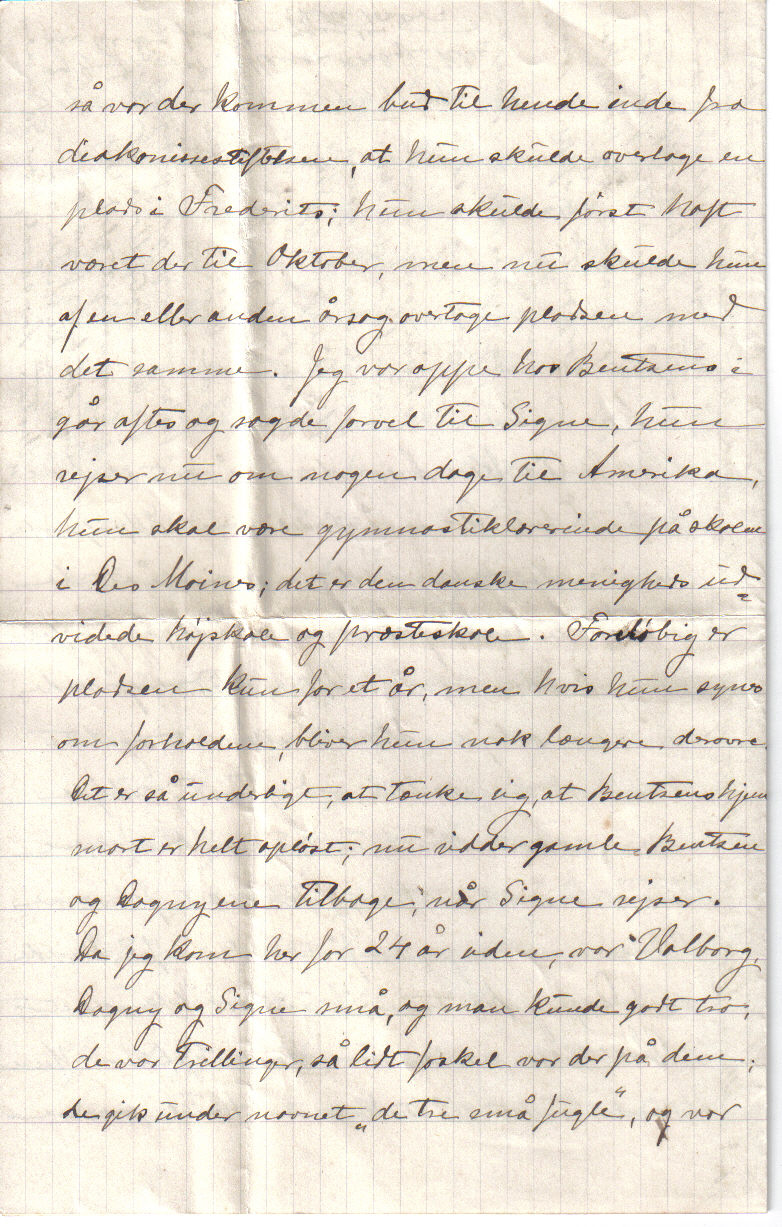 så var der kommen bud til hende inde fra
diakonissestiftelsen, at hun skulde overtage en
plads i Frederits; hun skulde först haft
været der til Oktober, men nu skulde hun
af en eller anden årsag overtage pladsen med
det samme. Jeg var oppe hos Bentzens i
går aftes og sagde farvel til Signe, hun
rejser nu om nogen dage til Amerika,
hun skal være gymnastiklærerinde på skolen
i Des Moines; det er den danske menigheds ud=
videde højskole og præsteskole. Foreløbig er
pladsen kun for et år, men hvis hun synes
om forholdene, bliver hun nok længere derovre.
Det er så underligt, at tænke sig, at Bentzens hjem
snart er helt opløst; nu sidder gamle Bentzen
og Dagny ene tilbage, når Signe rejser.
Da jeg kom her for 24 år siden, var Valborg,
Dagny og Signe små, og man kunde godt tro,
de var trillinger, så lidt forskel var der på dem;
de gik under navnet „de tre små fugle", og var